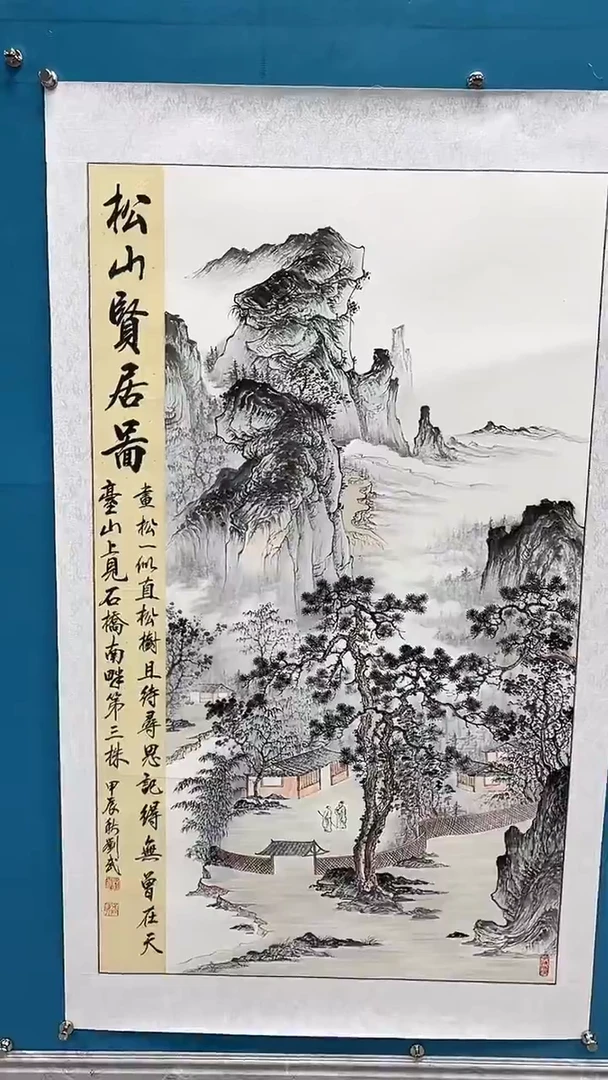 松山賢居啚
畫松一似直松樹且待尋思記得無曾在天
臺山上見石橋南畔第三株 甲辰秋劉武